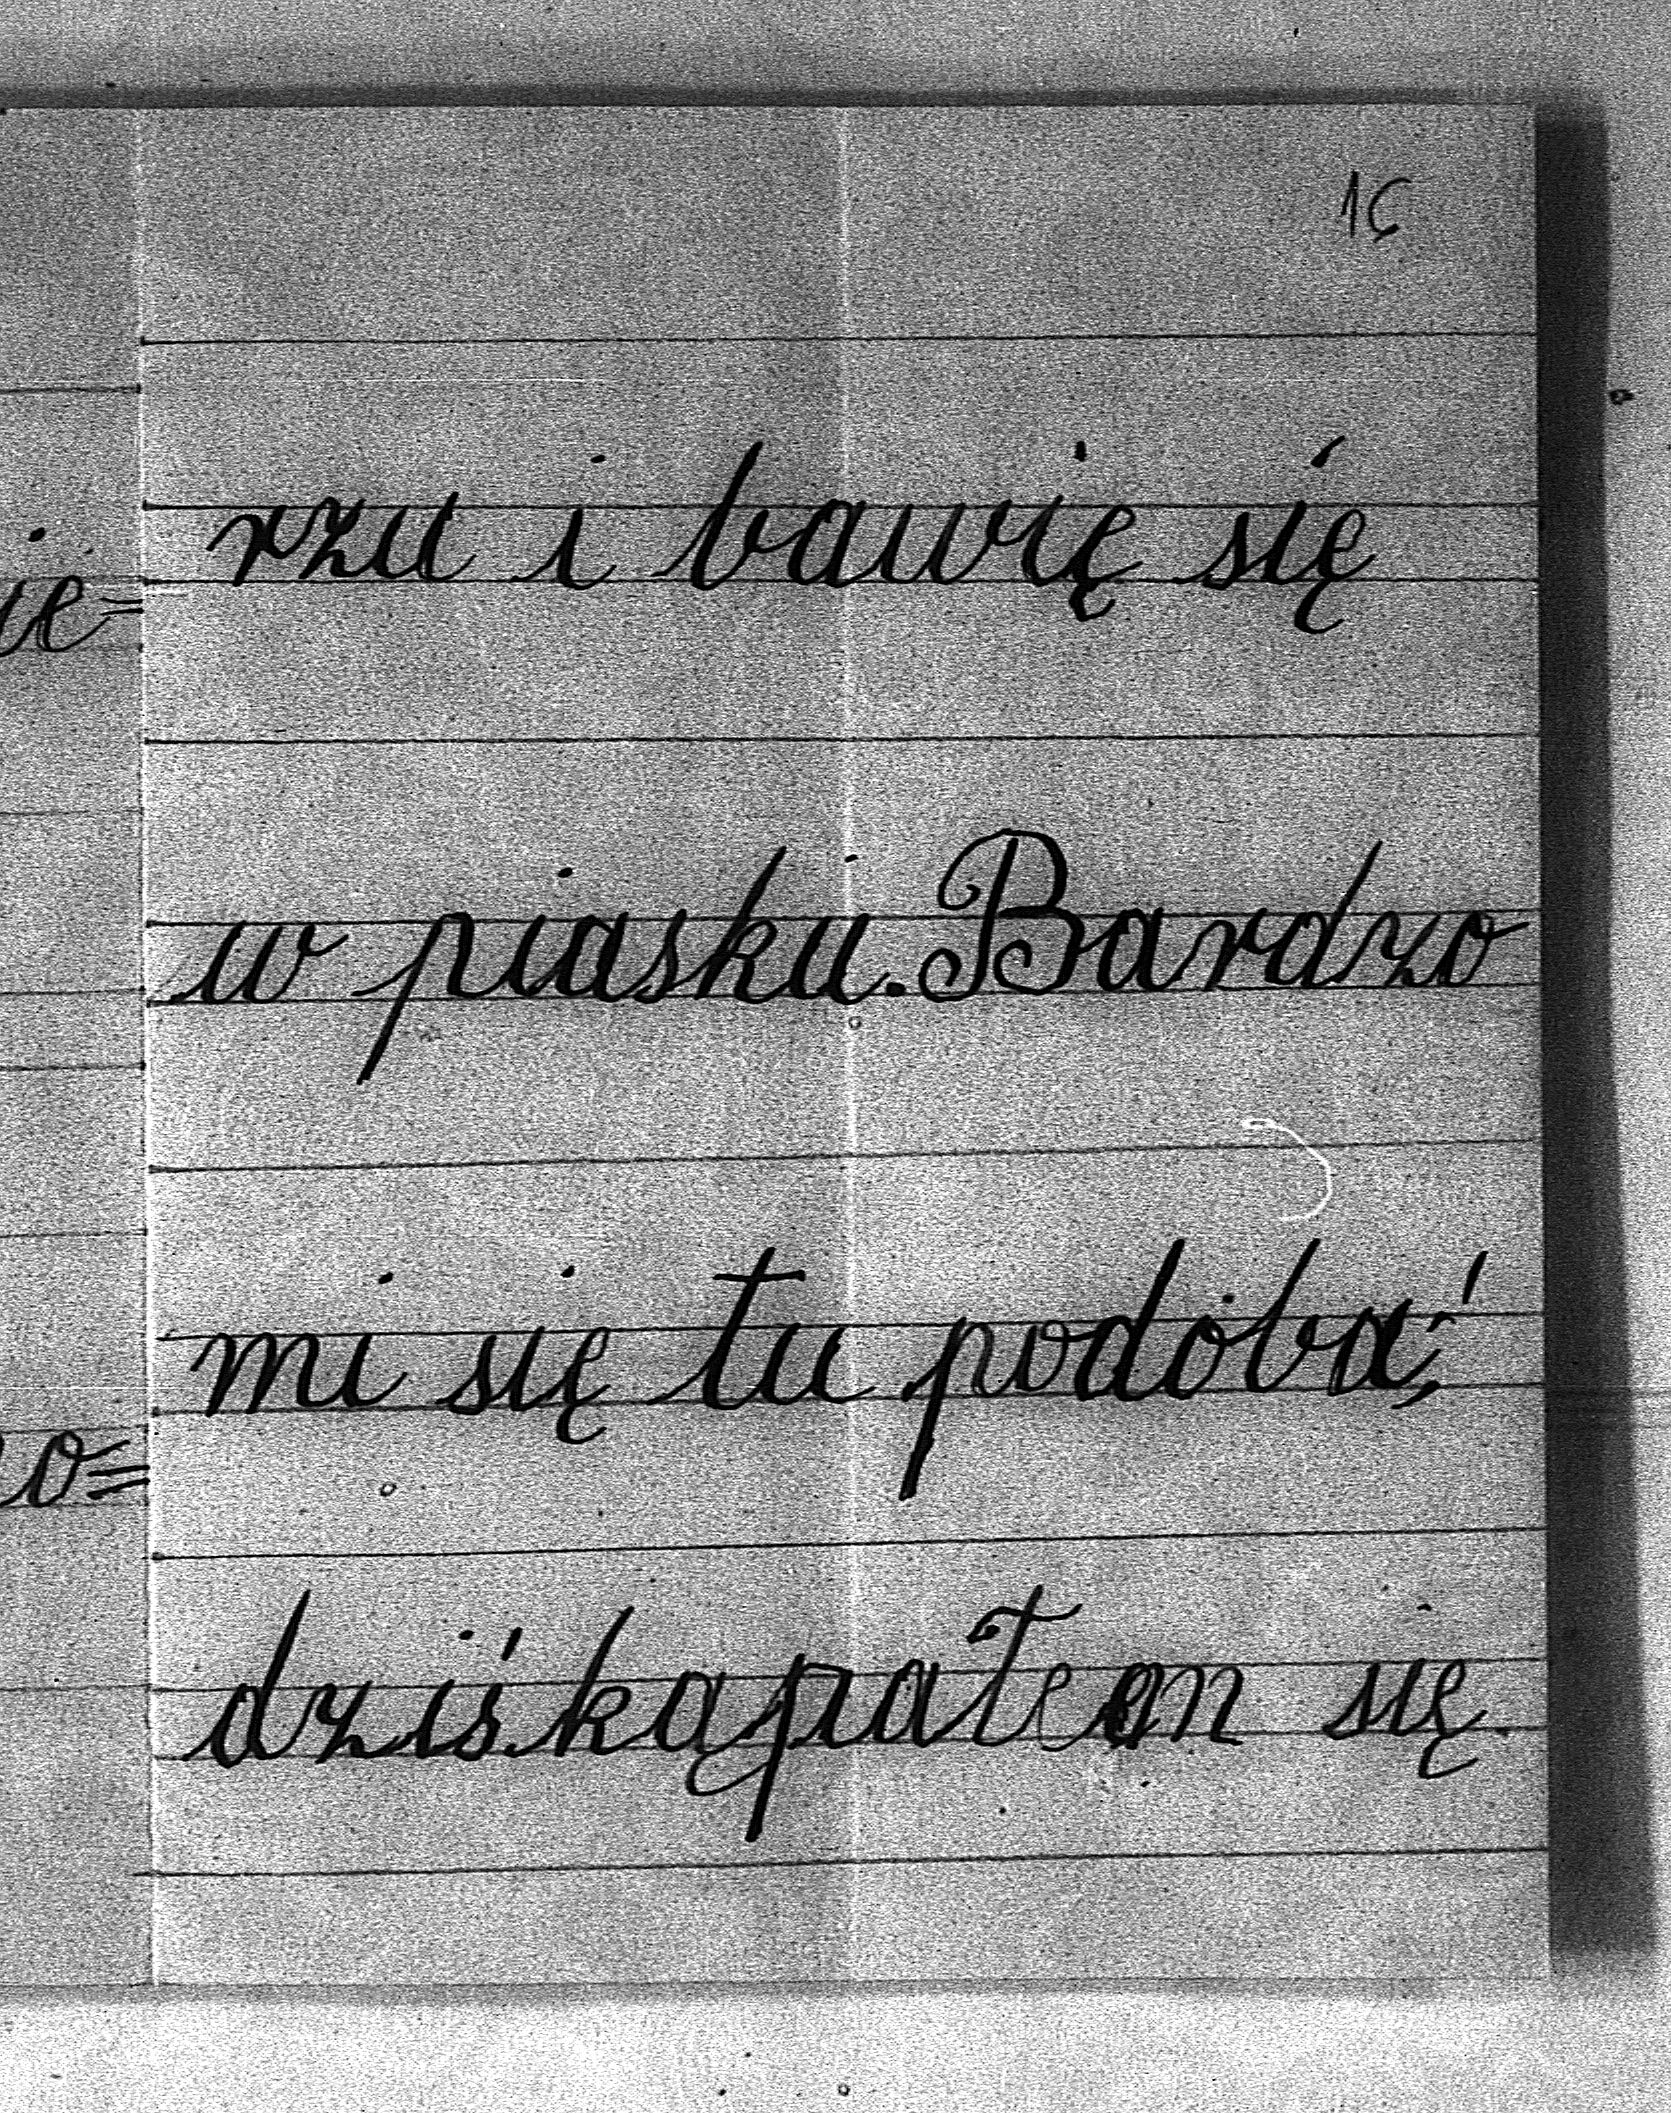 15
rzu i bawię się
ie=
w piasku. Bardzo
mi się tu podoba,
o=
dziś kąpałem się